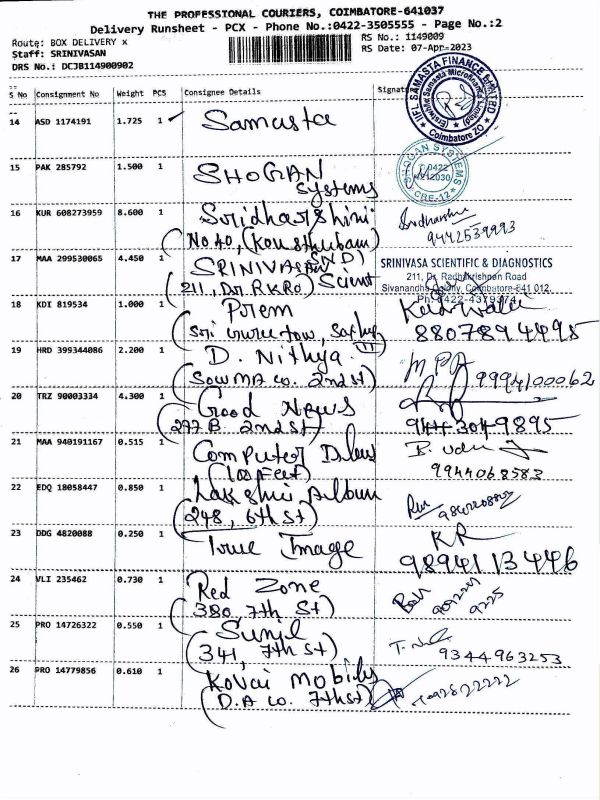 THE PROFESSIONAL COURIERS, COIMBATORE-641037
Delivery Runsheet - PCX - Phone No.:0422-3505555 - Page No.:2
Route: BOX DELIVERY x
Staff: SRINIVASAN
DRS No.: DCJB114900902
RS No.: 1149009
RS Date: 07-Apr-2023
S No Consignment No Weight PCS Consignee Details Signat
14 ASD 1174191 1.725 1 Samasta
IIFL SAMASTA FINANCE LIMITED
(Erstwhile Samasta Microfinance Limited)
Coimbatore ZO
15 PAK 285792 1.500 1 SHOGAN
Systems
SHOGAN SYSTEMS
CBE-12
16 KUR 608273959 8.600 1 Sridharshini
(No 40, (Kousthubam) 9442539993
17 MAA 299530065 4.450 1 SRINIVASAN
(211, Dr. RKRo) Scient
SRINIVASA SCIENTIFIC & DIAGNOSTICS
211, Dr. Radhakrishnan Road
Sivanandha Colony, Coimbatore-641 012.
Ph: 0422-4379374
18 KDI 819534 1.000 1 Prem
8807894495
19 HRD 399344086 2.200 1 D. Nithya
(Sowma co. 2nd st) 9994100062
20 TRZ 90003334 4.300 1 Good News
(277 B 2nd st) 9443049895
21 MAA 940191167 0.515 1 Computer
(100 Feet) 9944068583
22 EDQ 18058447 0.850 1 Lakshmi Album
(248, 6th St)
23 DDG 4820088 0.250 1 True Image KR
9894113446
24 VLI 235462 0.730 1 Red Zone
(380 7th St)
25 PRO 14726322 0.550 1 Sunil
(341, 7th St) 9344963253
26 PRO 14779856 0.610 1 Kovai Mobiles
(D.A co. 7th st)